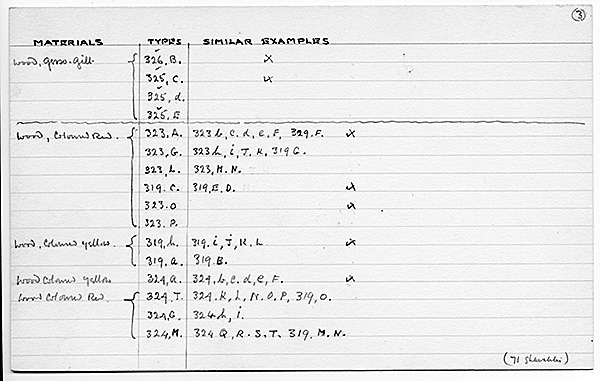 3
MATERIALS TYPES SIMILAR EXAMPLES
Wood, gesso-gilt. 326, B. x
325, C. x
325, d.
325, E
Wood, Coloured Red. 323. A. 323 b, c. d, e, F, 329. F. x
323, G. 323 h, i, J. K, 319 G.
323, L. 323, M. N.
319. C. 319, E. D. x
323. O x
323. P.
Wood, Coloured yellow. 319, h. 319. i, J, K. L x
319. a. 319. B.
Wood Coloured yellow 324, a. 324, b, c. d, e, F. x
Wood Coloured Red. 324. J. 324. K, L, N. O. P, 319, O.
324, G. 324 h, i.
324, M. 324 Q, R. S. T. 319, M. N.
(71 )